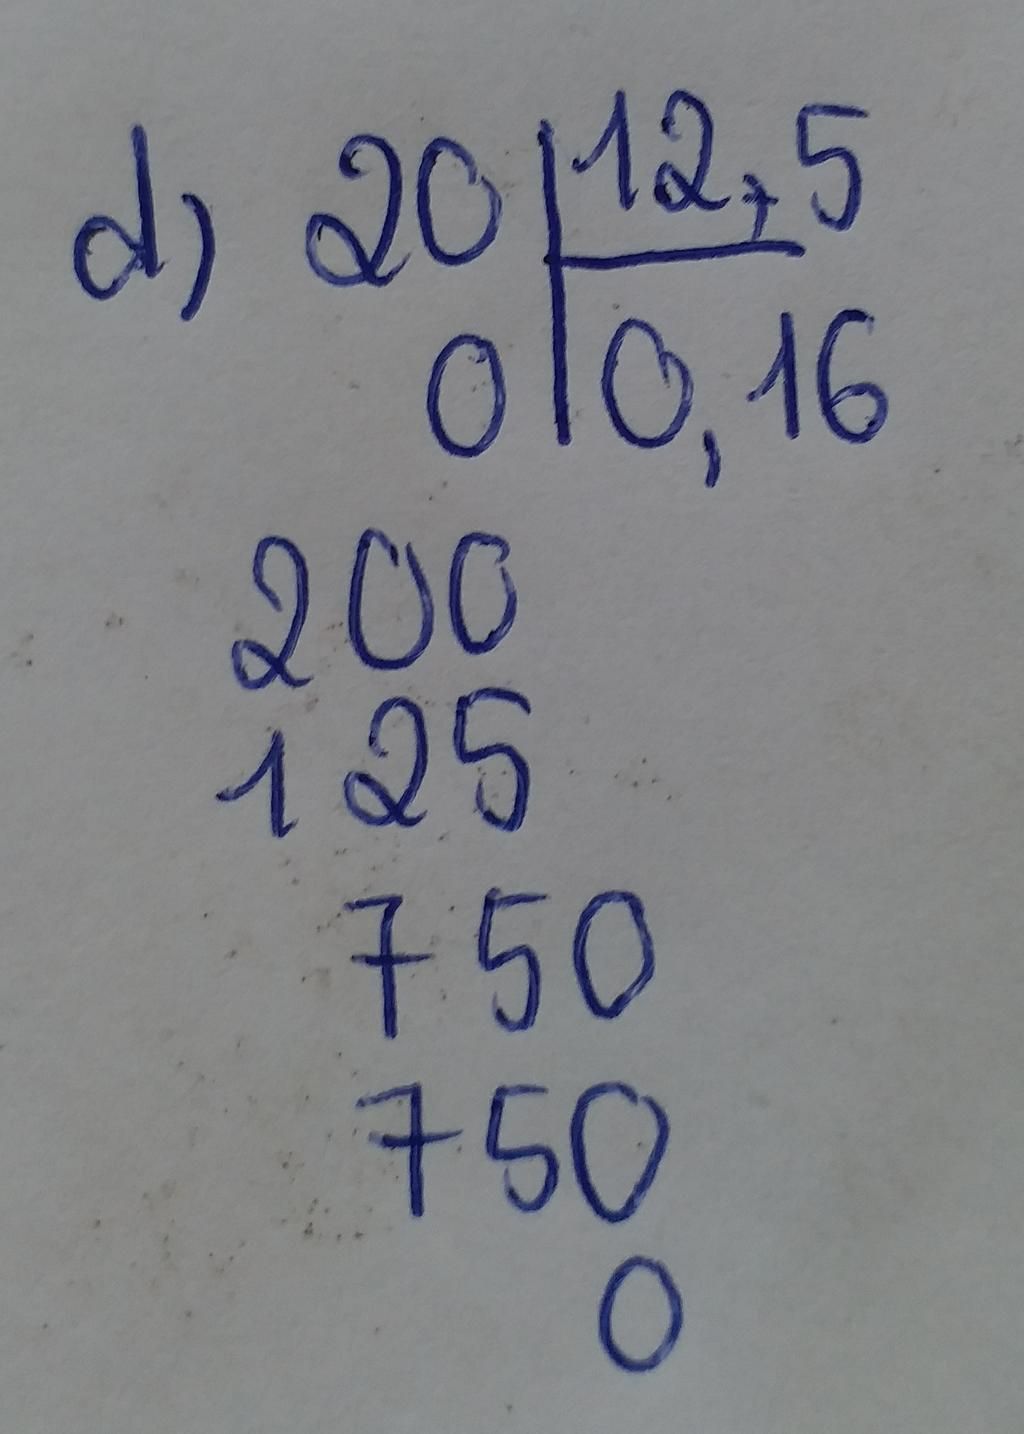 d) 20 12,5
0 0,16
200
125
750
750
0